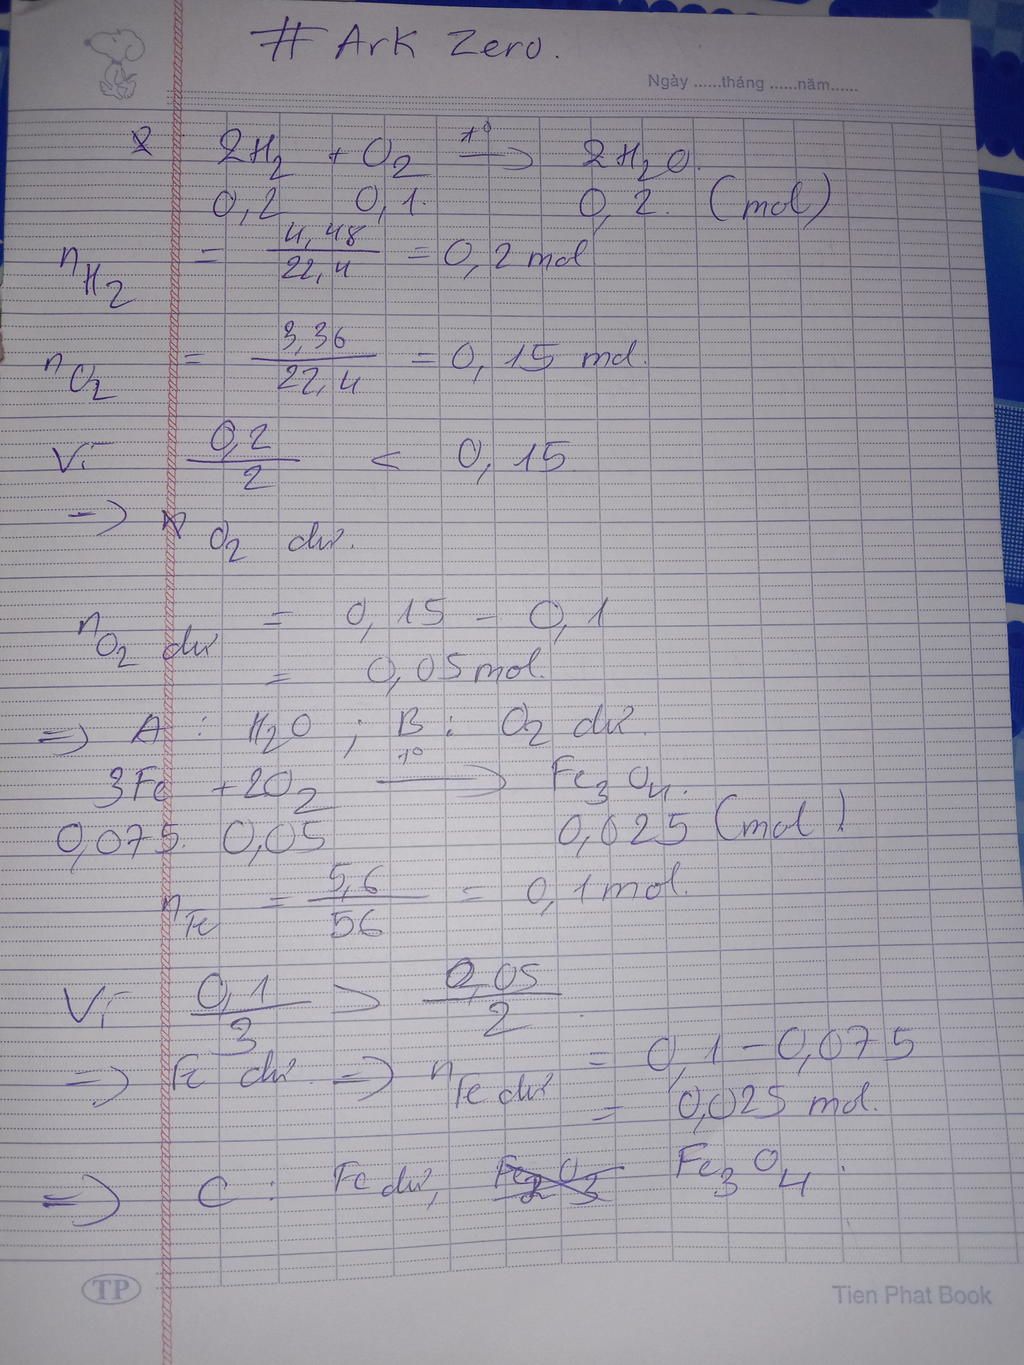 # Ark Zero.
Ngày ......tháng ......năm......
2H₂ + O₂ —t°→ 2H₂O.
0,2 0,1. 0,2. (mol)
nH₂ = 4,48/22,4 = 0,2 mol
nO₂ = 3,36/22,4 = 0,15 mol.
Vì 0,2/2 < 0,15
=> O₂ dư.
nO₂ dư = 0,15 - 0,1
= 0,05 mol.
=> A : H₂O ; B : O₂ dư.
3Fe + 2O₂ —t°→ Fe₃O₄.
0,075. 0,05 0,025 (mol)
nFe = 5,6/56 = 0,1 mol.
Vì 0,1/3 > 0,05/2
=> Fe dư => nFe dư = 0,1 - 0,075
= 0,025 mol.
=> C : Fe dư, Fe₃O₄.
TP
Tien Phat Book